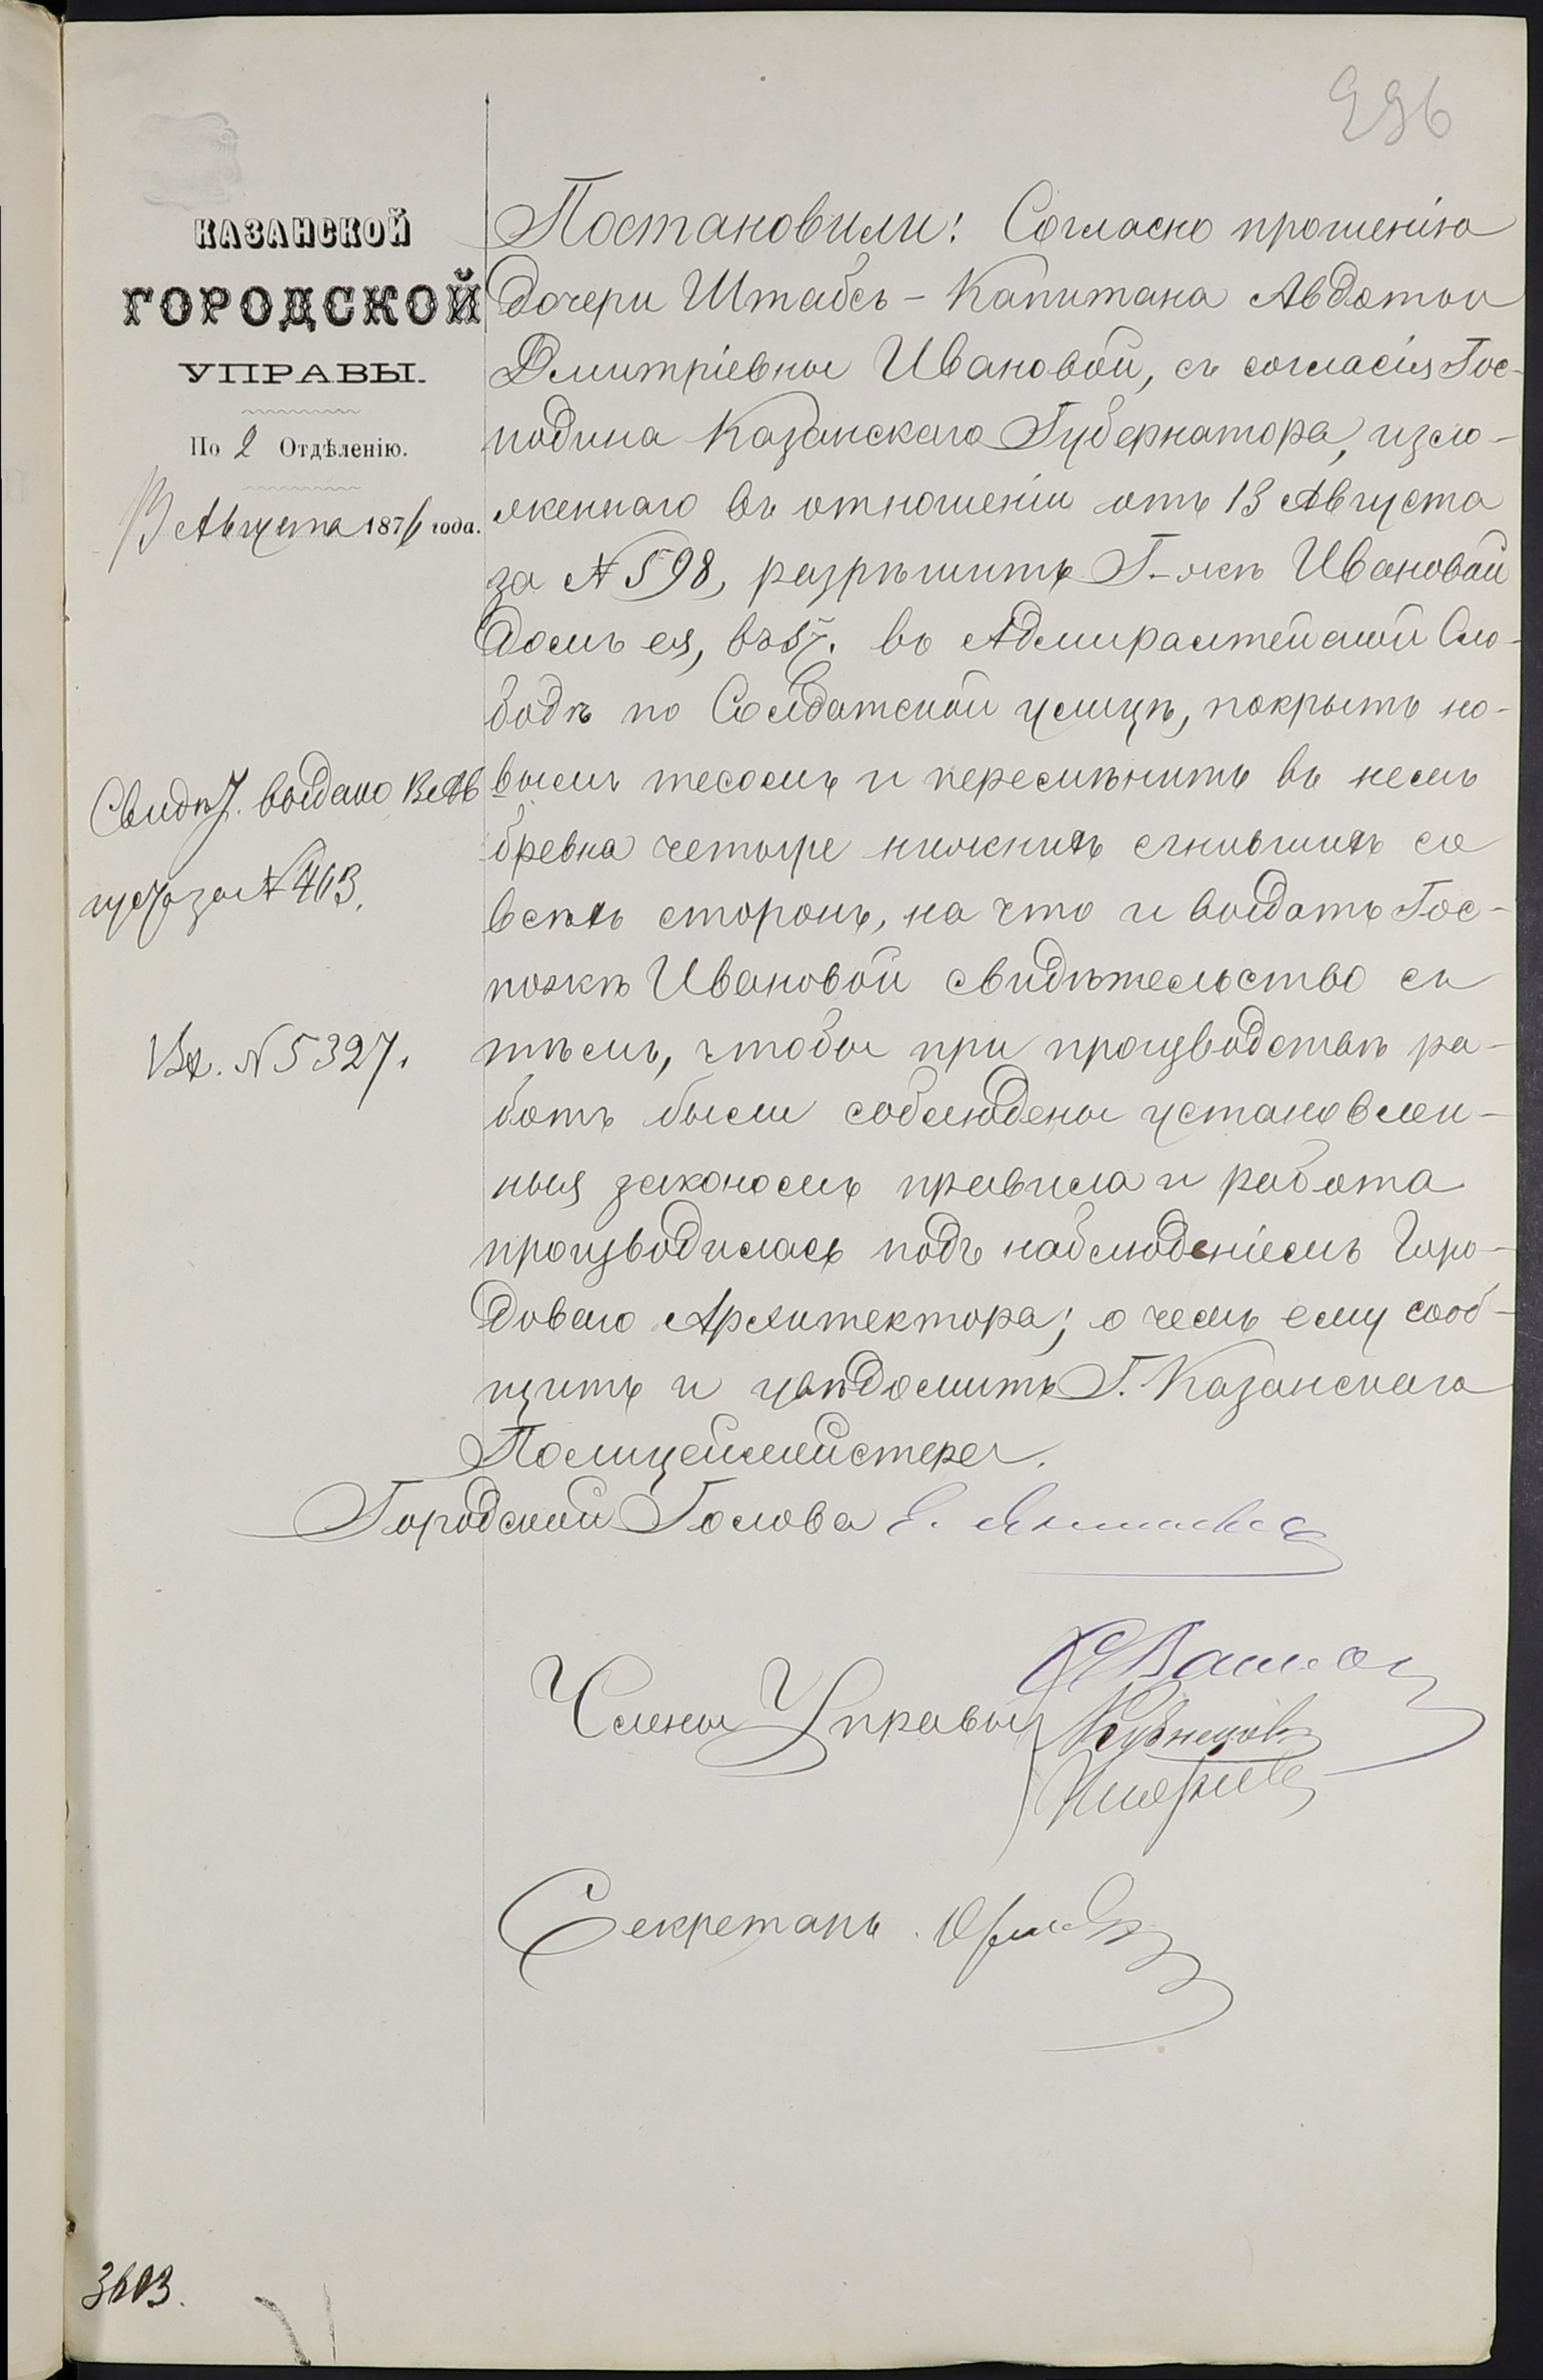 296
КАЗАНСКОЙ
ГОРОДСКОЙ
УПРАВЫ.
По 2 Отдѣленію.
13 Августа 1876 года.
Постановили: Согласно прошенію
дочери Штабсъ-Капитана Авдотьи
Дмитріевны Ивановой, съ согласія Гос-
подина Казанскаго Губернатора, изло-
женнаго въ отношеніи отъ 13 Августа
за № 598, разрѣшить Г-жѣ Ивановой
домъ ея, въ 5 ч. въ Адмиралтейской Сло-
бодѣ по Солдатской улицѣ, покрыть но-
вымъ тесомъ и перемѣнить въ немъ
бревна четыре нижнихъ сгнившихъ со
всѣхъ сторонъ, на что и выдать Гос-
пожѣ Ивановой свидѣтельство съ
тѣмъ, чтобы при производствѣ ра-
ботъ были соблюдены установлен-
ныя закономъ правила и работа
производилась подъ наблюденіемъ Горо-
доваго Архитектора; о чемъ ему сооб-
щить и увѣдомить Г. Казанскаго
Полицеймейстера.
Свидѣт. выдано 13 Ав
густа за № 463.
Вх. № 5327.
Городской Голова Е.
Члены Управы
Кузнецовъ
Секретарь
3603.